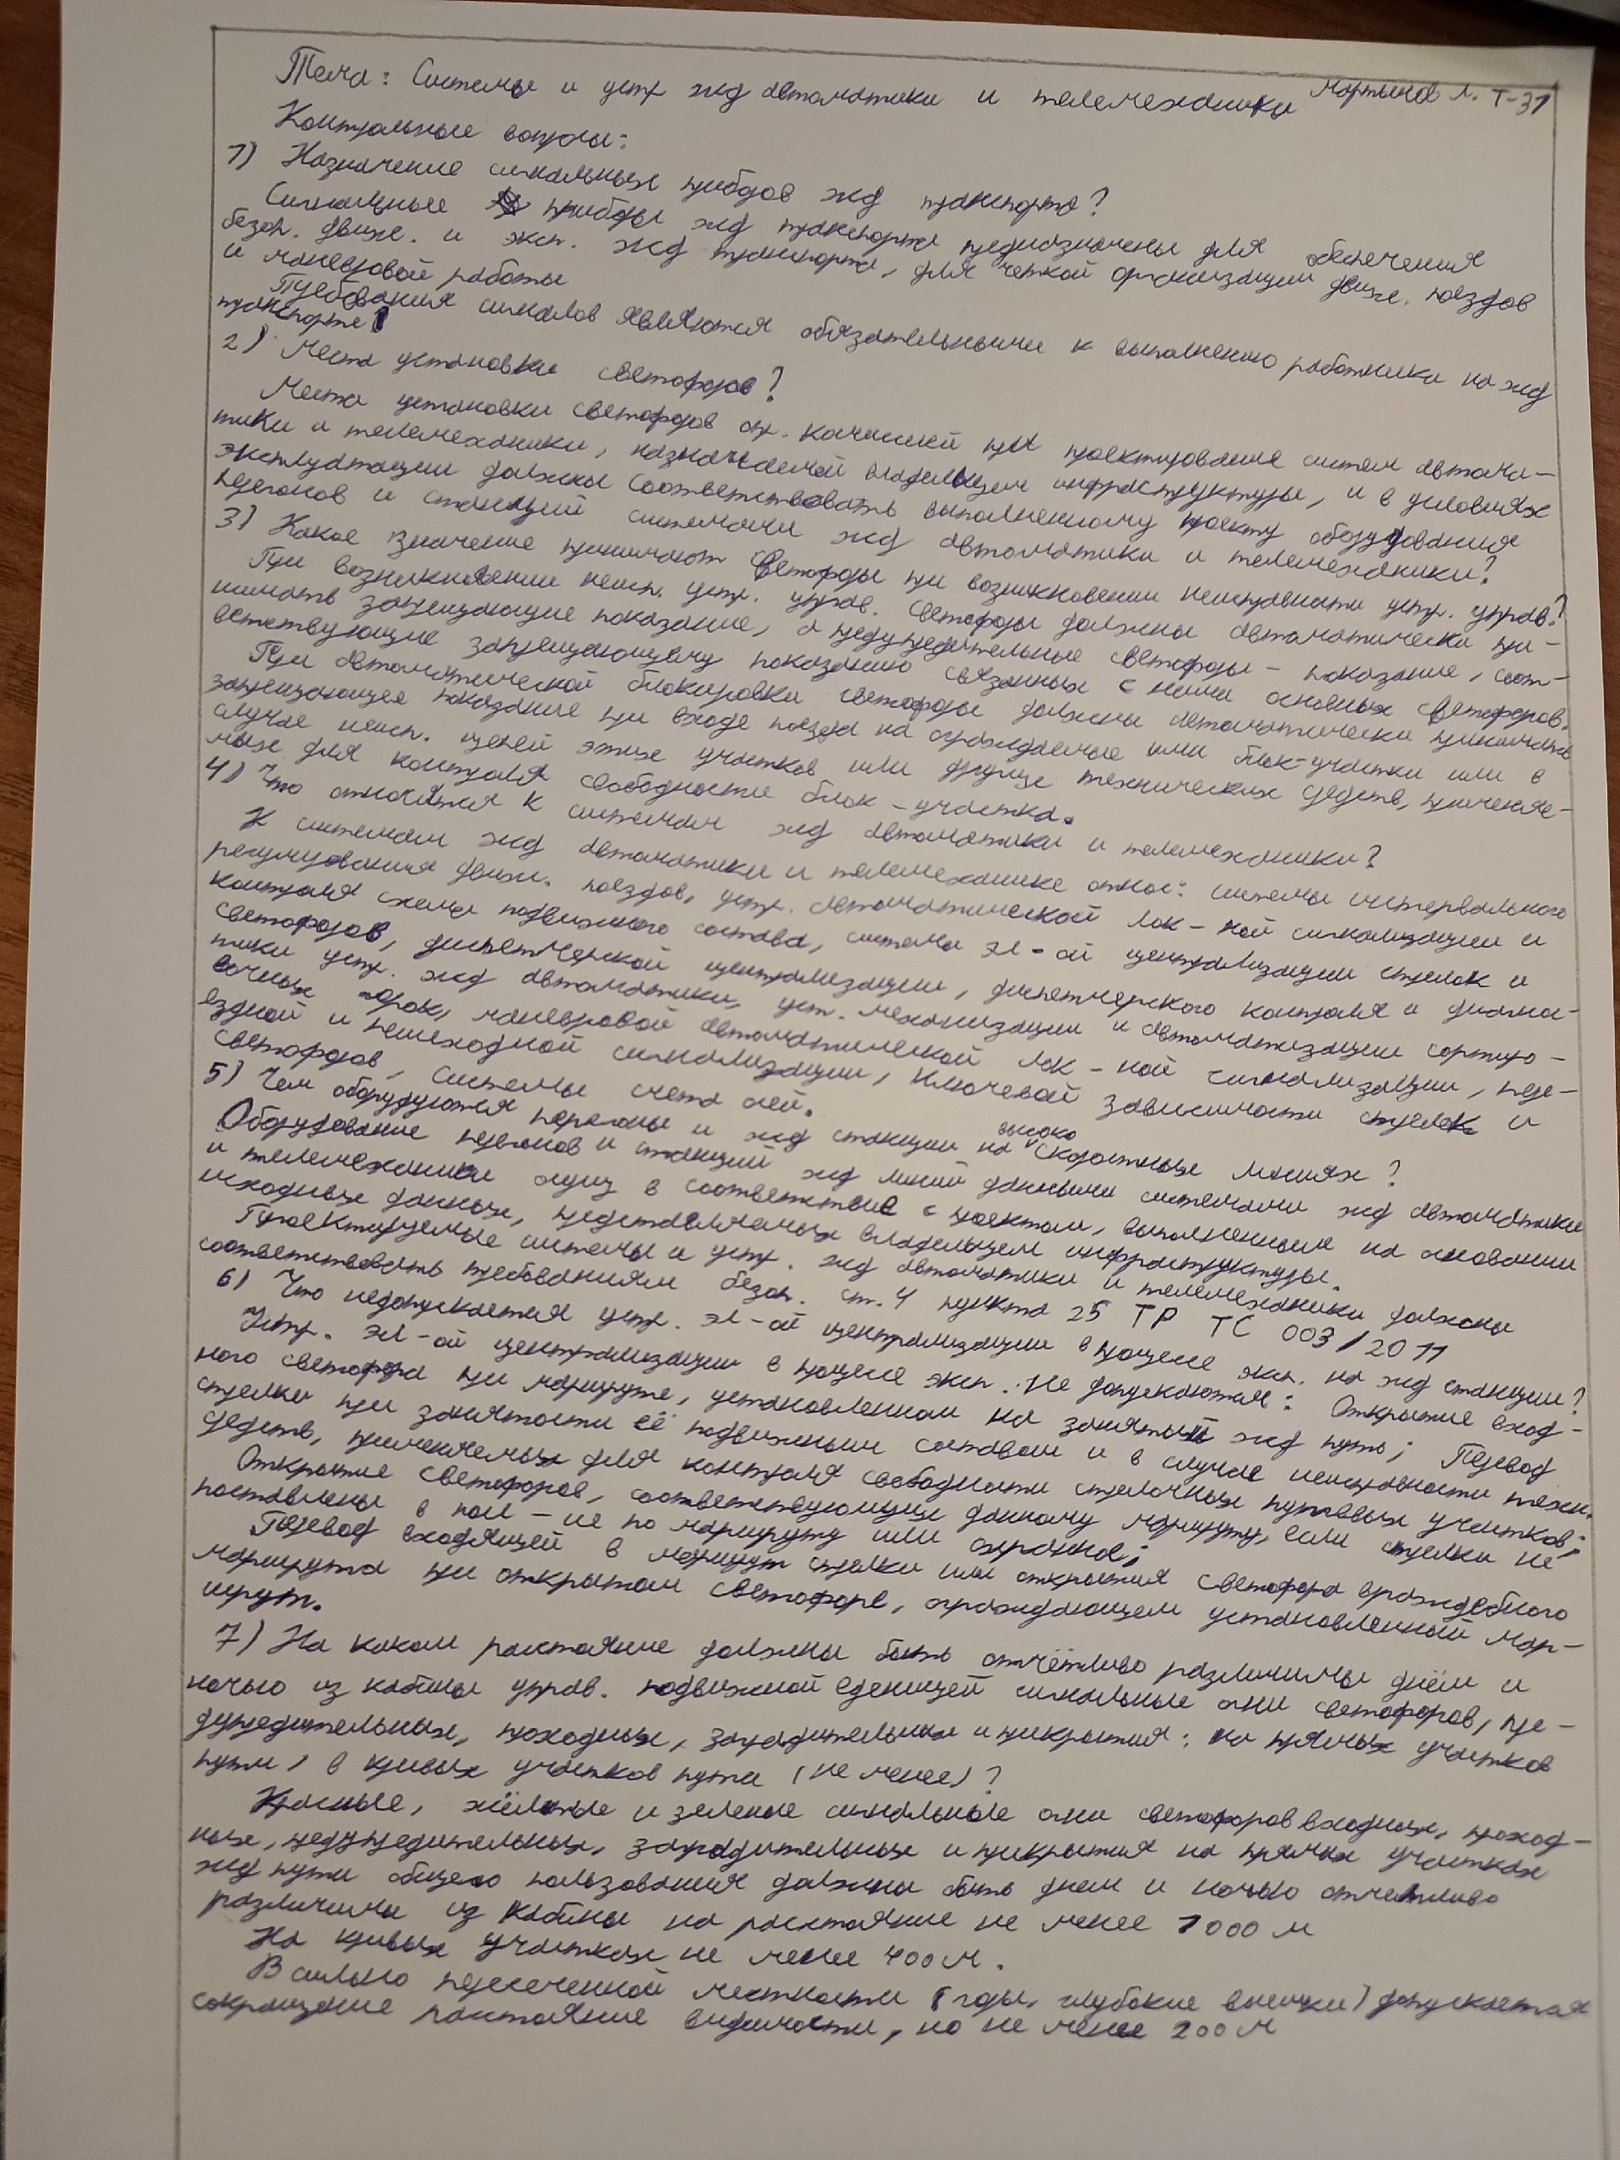 Тема: Системы и устр жд автоматики и телемеханики Мартынов Л. Т-31
Контрольные вопросы:
1) Назначение сигнальных приборов жд транспорта?
Сигнальные приборы жд транспорта предназначены для обеспечения
безоп. движ. и эксп. жд транспорта, для четкой организации движ. поездов
и маневровой работы
Требования сигналов являются обязательными к выполнению работники на жд
транспорте
2) Места установки светофоров?
Места установки светофоров опр. комиссией при проектирование систем автома-
тики и телемеханики, назначаемой владельцем инфраструктуры, и в условиях
эксплуатации должны соответствовать выполненному проекту оборудования
перегонов и станций системами жд автоматики и телемеханики.
3) Какое значение принимают светофоры при возникновении неисправности устр. управ.?
При возникновении неисп. устр. управ. светофоры должны автоматически при-
нимать запрещающие показание, а предупредительные светофоры - показание, соот-
ветствующие запрещающему показанию связанных с ними основных светофоров.
При автоматической блокировки светофоры должны автоматически принимать
запрещающее показание при входе поезда на ограждаемые ими блок-участки или в
случае неисп. цепей этих участков или других технических средств, применяе-
мых для контроля свободности блок-участка.
4) Что относится к системам жд автоматики и телемеханики?
К системам жд автоматики и телемеханике относ: системы интервального
регулирования движ. поездов, устр. автоматической лок-ной сигнализации и
контроля схода подвижного состава, система эл-ой централизации стрелок и
светофоров, диспетчерской централизации, диспетчерского контроля и диагнос-
тики устр. жд автоматики, уст. механизации и автоматизации сортиро-
вочных горок, маневровой автоматической лок-ной сигнализации, пере-
ездной и пешеходной сигнализации, ключевой зависимости стрелок и
светофоров, системы счета осей.
5) Чем оборудуются перегоны и жд станции на высоко скоростных линиях?
Оборудование перегонов и станций жд линий данными системами жд автоматики
и телемеханики осущ в соответствие с проектом, выполненным на основании
исходных данных, представляемых владельцем инфраструктуры.
Проектируемые системы и устр. жд автоматики и телемеханики должны
соответствовать требованиям безоп. ст. 4 пункта 25 ТР ТС 003/2011
6) Что недопускается устр. эл-ой централизации в процессе эксп. на жд станции?
Устр. эл-ой централизации в процесе эксп. не допускаются: Открытие вход-
ного светофора при маршруте, установленном на занятый жд путь; Перевод
стрелки при занятости её подвижным составом и в случае неисправности техн.
средств, применяемых для контроля свободности стрелочных путевых участков;
Открытие светофоров, соответствующих данному маршруту, если стрелки не
поставлены в пол-ие по маршруту или охранное;
Перевод входящей в маршрут стрелки или открытия светофора враждебного
маршрута при открытом светофоре, ограждающем установленный мар-
шрут.
7) На каком расстояние должны быть отчётливо различимы днём и
ночью из кабины управ. подвижной еденицей сигнальные огни светофоров, пре-
дупредительных, проходных, заградительных и прикрытия: на прямых участков
пути, в кривых участков пути (не менее)?
Красные, жёлтые и зеленые сигнальные огни светофоров входных, проход-
ных, предупредительных, заградительных и прикрытия на прямых участках
жд пути общего пользования должны быть днем и ночью отчетливо
различимы из кабины на расстояние не менее 1000 м
На кривых участках не менее 400 м.
В сильно пересеченной местности (горы, глубокие выемки) допускается
сокращение расстояние видимости, но не менее 200 м